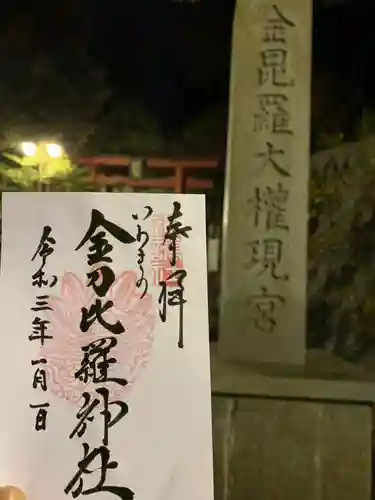 金毘羅大権現宮
奉拝
いりまの
金刀比羅神社
令和三年一月一日